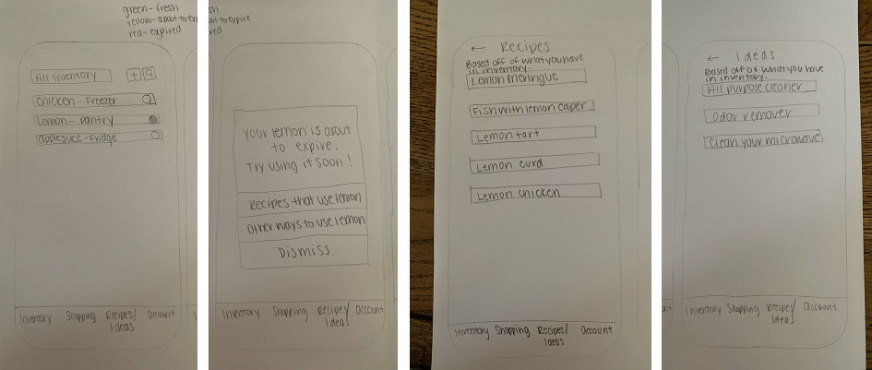 green-fresh
yellow-about to expire
red-expired
All inventory
+
Chicken-Freezer
Lemon-Pantry
applejuice-Fridge
Inventory Shopping Recipes/ Account
Ideas
sh
about to expire
red
Your lemon is about
to expire.
Try using it soon!
Recipes that use lemon
Other ways to use lemon
Dismiss
Inventory Shopping Recipes/ Account
Ideas
← Recipes
Based off of what you have
in inventory.
Lemon meringue
Fish with lemon caper
Lemon tart
Lemon curd
Lemon chicken
Inventory Shopping Recipes/ Account
Ideas
← Ideas
Based off of what you have
in inventory.
All purpose cleaner
Odor remover
Clean your microwave
Inventory Shopping Recipes/ Account
Ideas